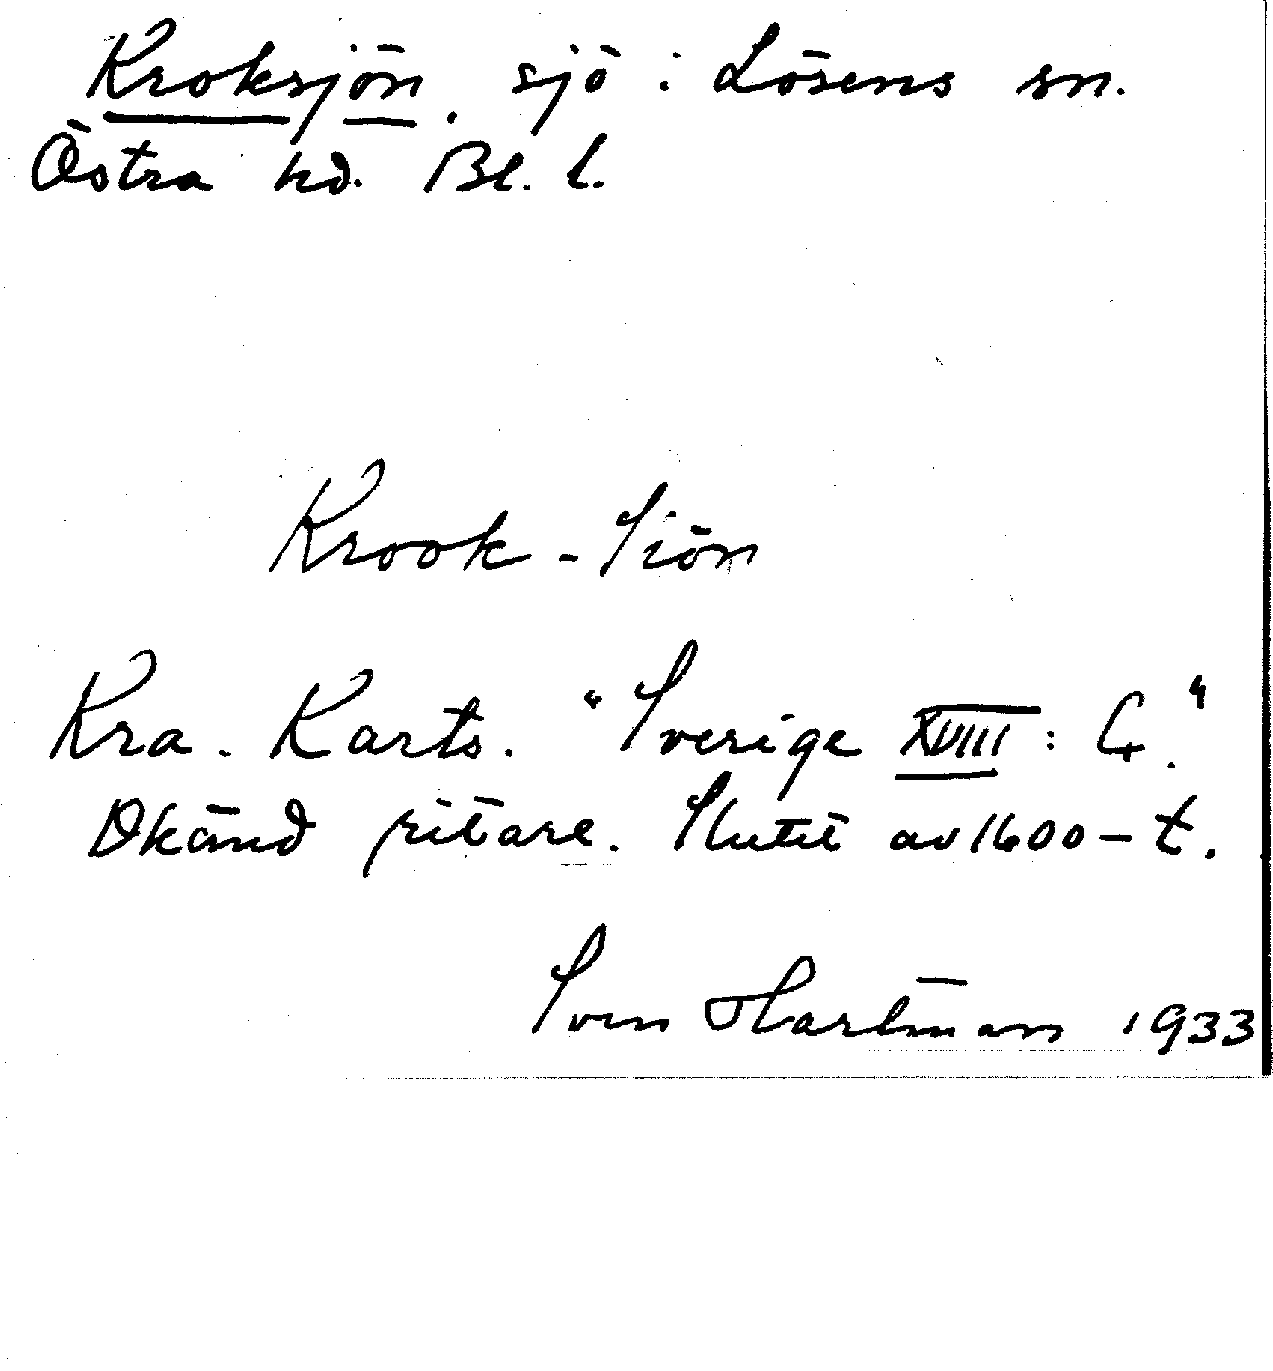 Kroksjön. sjö i Lösens sn.
Östra hd. Bl. l.
Krook - Siön
Kra. Karts. "Sverige XVIII : G."
Okänd ritare. Slutet av 1600-t.
Sven Hartman 1933